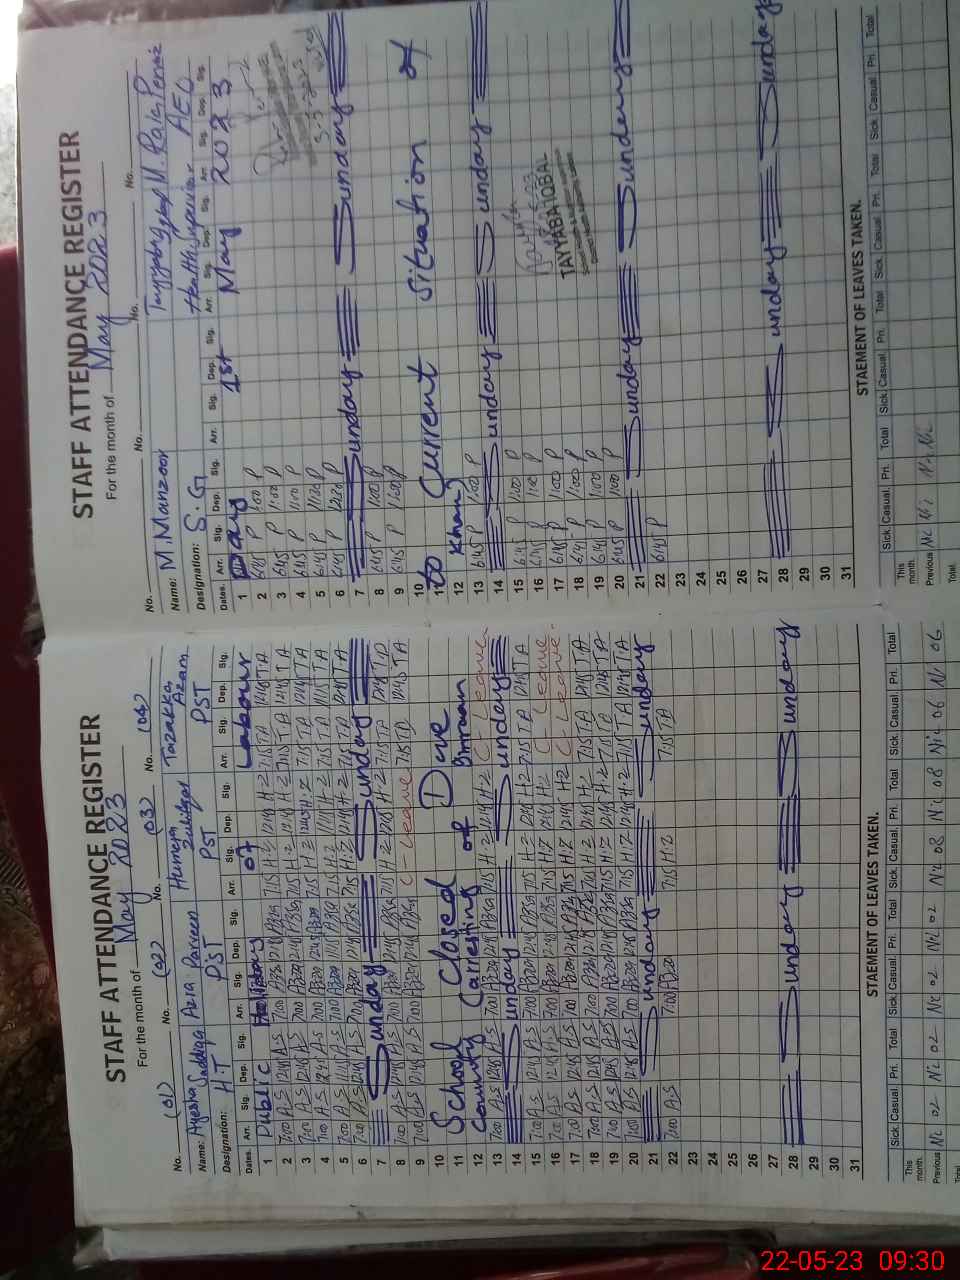 STAFF ATTENDANCE REGISTER
For the month of May 2023
No. (01) No. (02) No. (03) No. (04)
Name: Ayesha Saddiqa Azra Parveen Humera Zulfiqar Tazakka Azam
Designation: H T PST PST PST
Dates. Arr. Sig. Dep. Sig. Arr. Sig. Dep. Sig. Arr. Sig. Dep. Sig. Arr. Sig. Dep. Sig.
1 Public Holiday of Labour
2 7:00 A-S 12:45 A-S 7:00 12:45 7:15 H-Z 12:45 H-Z 7:15 T A 12:45 T A
3 7:00 A-S 12:45 A-S 7:00 12:45 7:15 H-Z 12:45 H-Z 7:15 T A 12:45 T A
4 7:00 A-S 12:45 A-S 7:00 12:45 7:15 H-Z 12:45 H-Z 7:15 T A 12:45 T A
5 7:00 A-S 11:15 A-S 7:00 11:15 7:15 H-Z 11:15 H-Z 7:15 T A 11:15 T A
6 7:00 A-S 12:45 A-S 7:00 12:45 7:15 H-Z 12:45 H-Z 7:15 T A 12:45 T A
7 Sunday Sunday
8 7:00 A-S 12:45 A-S 7:00 12:45 7:15 H-Z 12:45 H-Z 7:15 T A 12:45 T A
9 7:00 A-S 12:45 A-S 7:00 12:45 C-Leave 7:15 T A 12:45 T A
10 School Closed Due
11 Country Carresting of Imraan
12
13 7:00 A-S 12:45 A-S 7:00 12:45 7:15 H-Z 12:45 H-Z C-Leave
14 Sunday Sunday
15 7:00 A-S 12:45 A-S 7:00 12:45 7:15 H-Z 12:45 H-Z 7:15 T A 12:45 T A
16 7:00 A-S 12:45 A-S 7:00 12:45 7:15 H-Z 12:45 H-Z C-Leave
17 7:00 A-S 12:45 A-S 7:00 12:45 7:15 H-Z 12:45 H-Z C-Leave
18 7:00 A-S 12:45 A-S 7:00 12:45 7:15 H-Z 12:45 H-Z 7:15 T A 12:45 T A
19 7:00 A-S 12:45 A-S 7:00 12:45 7:15 H-Z 12:45 H-Z 7:15 T A 12:45 T A
20 7:00 A-S 12:45 A-S 7:00 12:45 7:15 H-Z 12:45 H-Z 7:15 T A 12:45 T A
21 Sunday Sunday
22 7:00 A-S 7:00 7:15 H-Z 7:15 T A
23
24
25
26
27
28 Sunday Sunday
29
30
31
STAEMENT OF LEAVES TAKEN.
Sick Casual Pri. Total Sick Casual Pri. Total Sick Casual Pri. Total Sick Casual Pri. Total
This month.
Previous Nil 02 Nil 02 Nil 02 Nil 02 Nil 08 Nil 08 Nil 06 Nil 06
Total
STAFF ATTENDANCE REGISTER
For the month of May 2023
No. No. No. No.
Name: M. Manzoor
Designation: S. G AEO
Dates. Arr. Sig. Dep. Sig. Arr. Sig. Dep. Sig. Arr. Sig. Dep. Sig. Arr. Sig. Dep. Sig.
1 Day 1st May 2023
2 6:45 P 1:00 P
3 6:45 P 1:00 P
4 6:45 P 1:00 P
5 6:45 P 11:30 P
6 6:45 P 12:30 P
7 Sunday Sunday
8 6:45 P 1:00 P
9 6:45 P 1:00 P
10 to Current Situation of
11
12 Khan
13 6:45 P 1:00 P
14 Sunday Sunday
15 6:45 P 1:00 P
16 6:45 P 1:00 P
17 6:45 P 1:00 P
TAYYABA IQBAL
18 6:45 P 1:00 P
19 6:45 P 1:00 P
20 6:45 P 1:00 P
21 Sunday Sunday
22 6:45 P
23
24
25
26
27
28 Sunday Sunday
29
30
31
STAEMENT OF LEAVES TAKEN.
Sick Casual Pri. Total Sick Casual Pri. Total Sick Casual Pri. Total Sick Casual Pri. Total
This month.
Previous Nil Nil Nil Nil
Total.
22-05-23 09:30